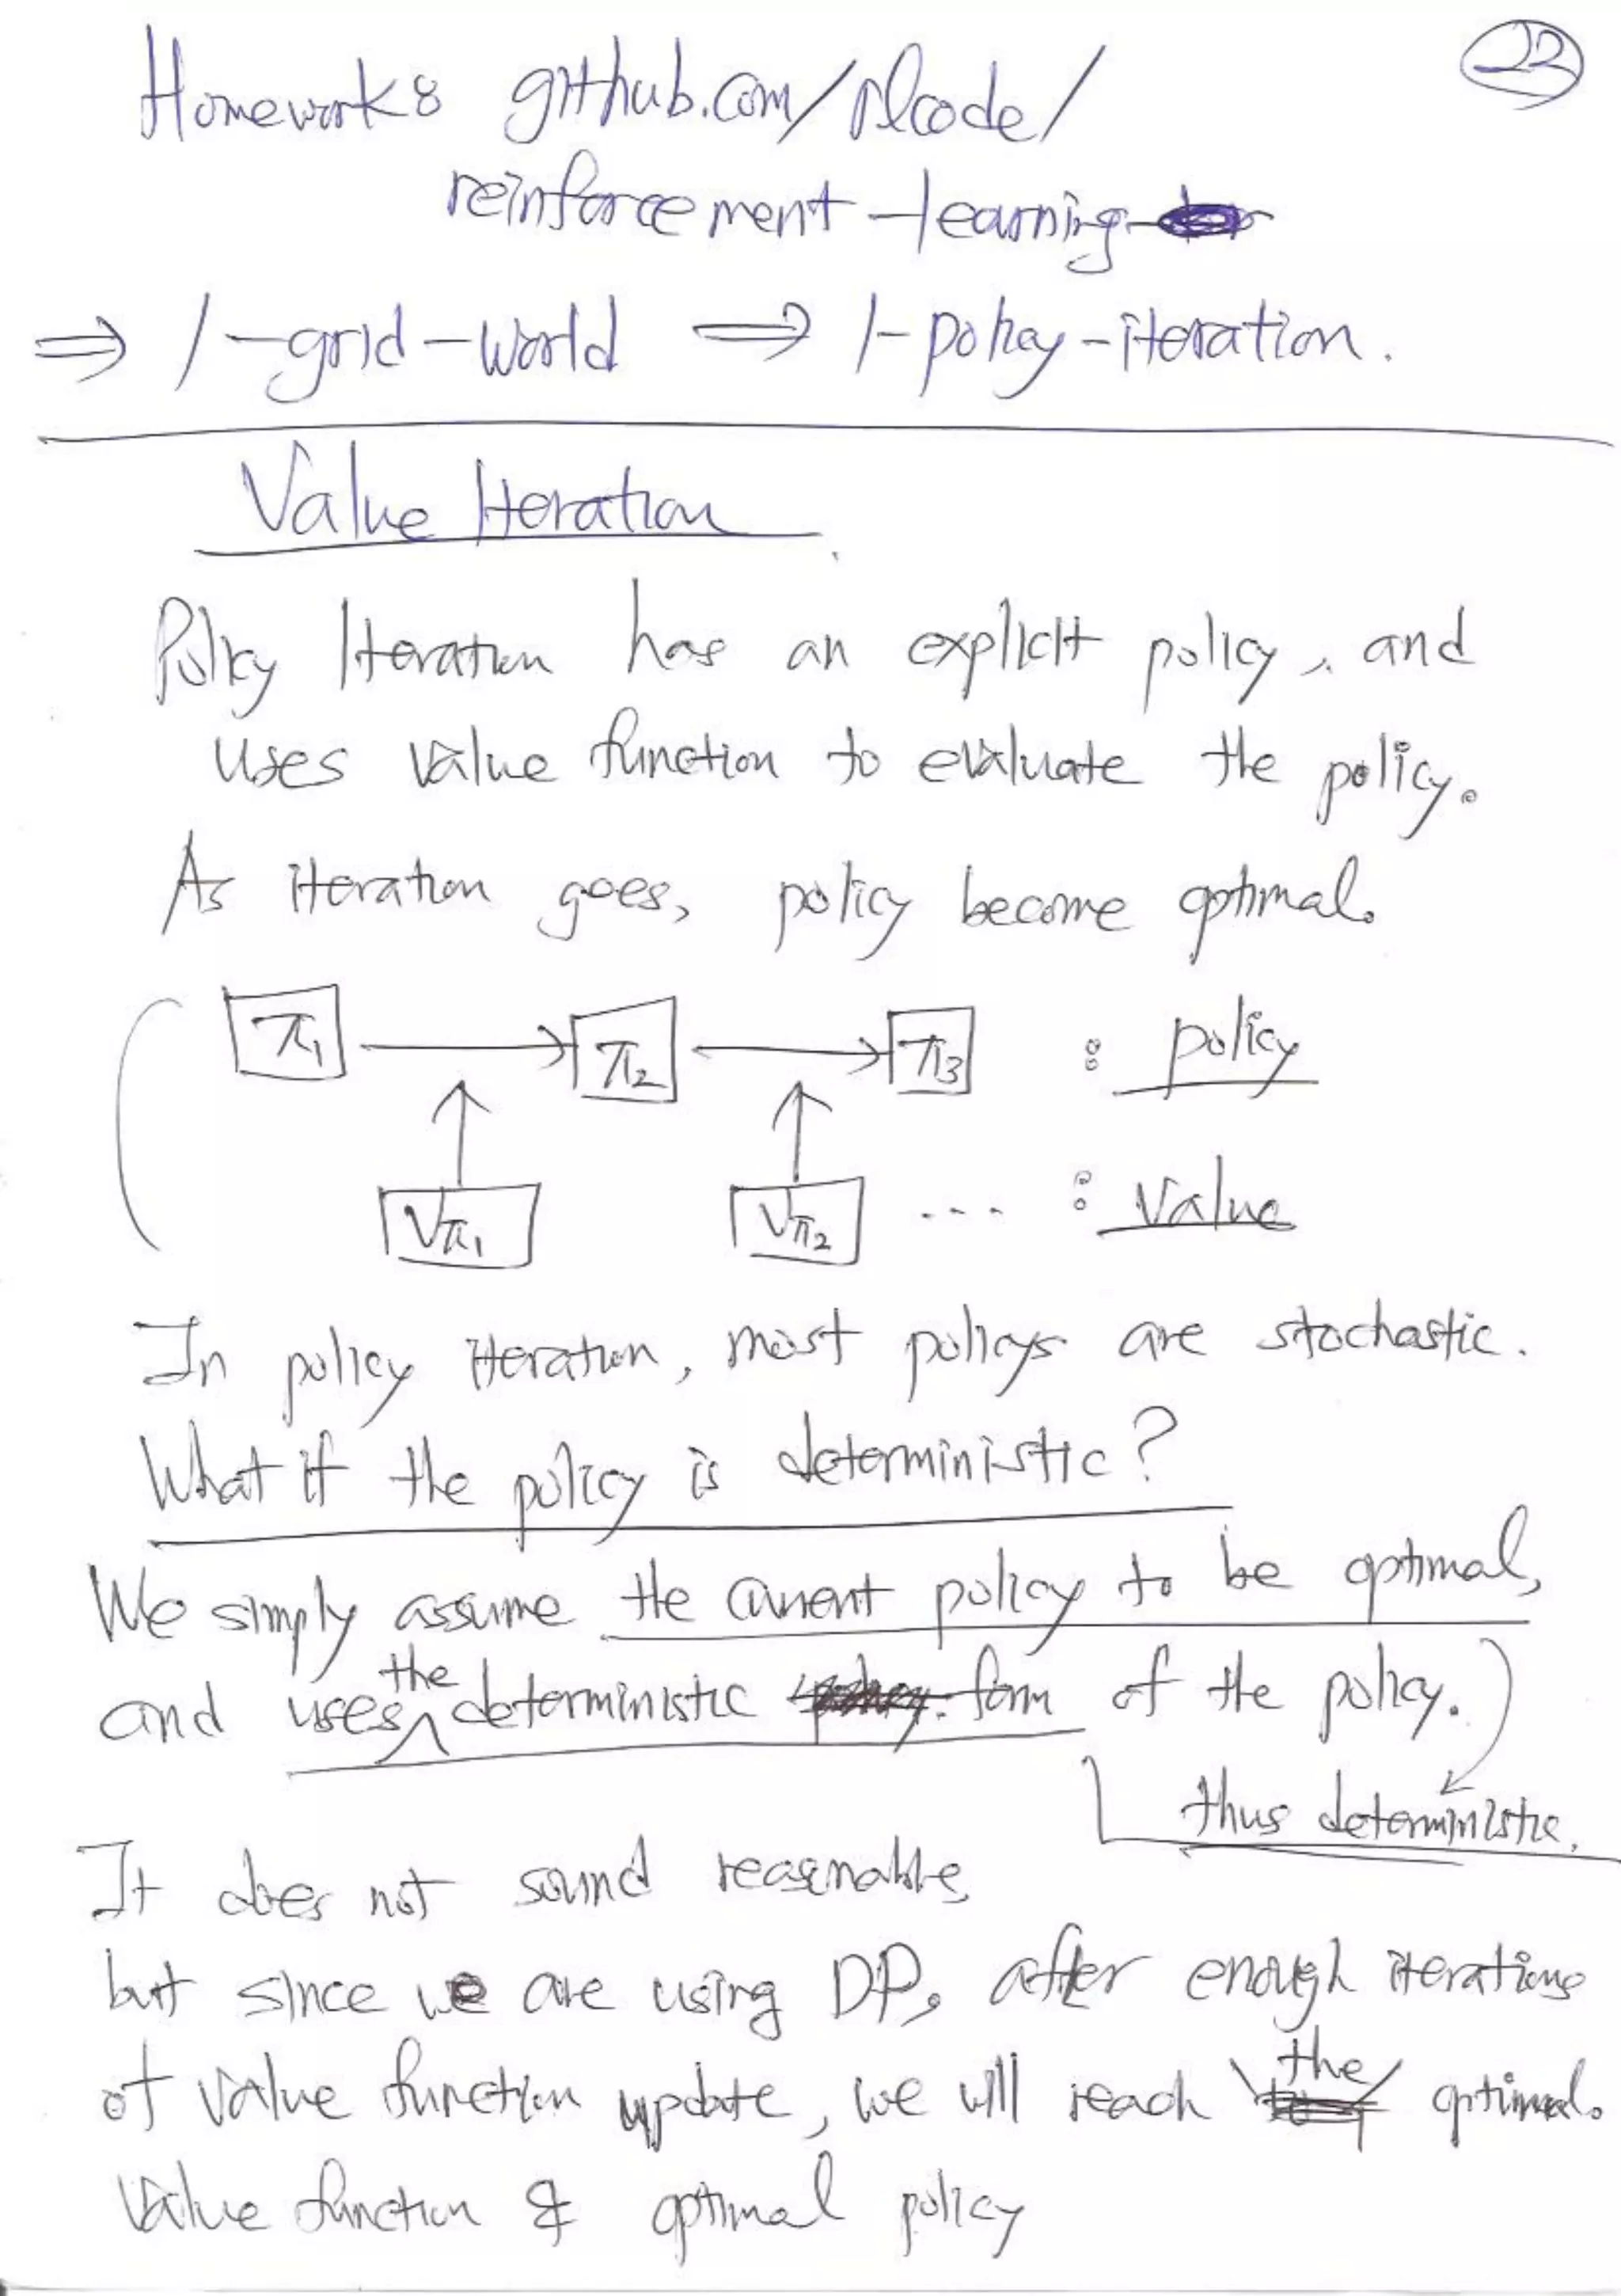 22
Homework: github.com/rlcode/
reinforcement-learning
⇒ 1-grid-world ⇒ 1-policy-iteration.
Value Iteration
Policy Iteration has an explicit policy, and
uses value function to evaluate the policy.
As iteration goes, policy become optimal.
π1 → π2 → π3 : policy
Vπ1 Vπ2 .... : value
In policy iteration, most policys are stochastic.
What if the policy is deterministic?
We simply assume the current policy to be optimal,
and uses the deterministic form of the policy.
thus deterministic.
It does not sound reasonable,
but since we are using DP, after enough iterations
of value function update, we will reach the optimal.
value function & optimal policy